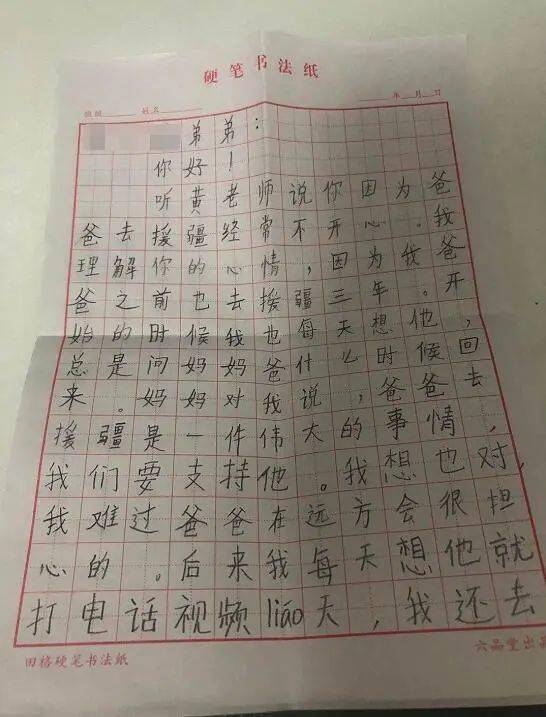 硬笔书法纸
班级 姓名 年 月 日
弟弟：
你好！
听黄老师说你因为爸
爸去援疆经常不开心。我
理解你的心情，因为我爸
爸之前也去援疆三年。开
始的时候我也每天想他，
总是问妈妈爸什么时候回
来。妈妈对我说，爸爸去
援疆是一件伟大的事情，
我们要支持他。我想也对，
我难过爸爸在远方会很担
心的。后来我每天想他就
打电话视频liáo天，我还去
田格硬笔书法纸 六品堂出品